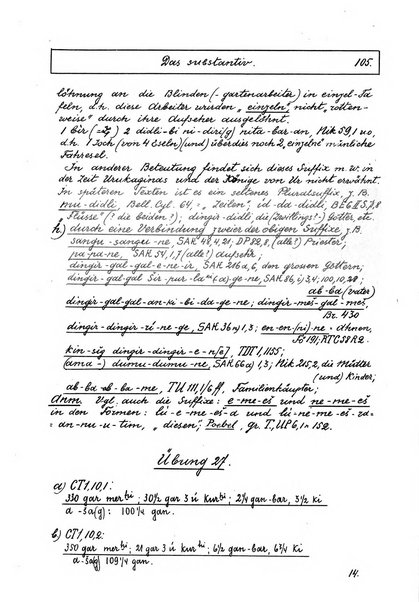 Das substantiv. 105.
löhnung an die Blinden (= gartenarbeiter) in einzel-Ta-
feln, d.h. diese Arbeiter wurden „einzeln" nicht „rotten-
weise" durch ihre Aufseher ausgelöhnt.
1 bir 2 didli-bi ni-diri(g) nita-bar-an, Nik 59, I
d.h. 1 Joch (von 4 Eseln) und überdies noch 2 „einzelne" männliche
Fahresel.
In anderer Betautung findet sich dieses Suffix m.w. in
der Zeit Urukaginas und der Könige von Ur nicht erwähnt.
In späteren Texten ist es ein seltenes Pluralsuffix, z.B.
mu-didli, Bell. Cyl. 64, = „Zeilen", id-da-didli,
„Flüsse" (? die beiden?); dingir-didli die (Zwillings?-) Götter etc.
h) durch eine Verbindung zweier der obigen Suffixe, z.B.
sangu-sangu-ne, SAK 48, 4, 21; DP 82, 8, (alle?) Priester;
pa-pa-ne, SAK 54, 1, 7 (alle?) Aufseher;
dingir-gal-gal-e-ne-ir, SAK 216 a, 6, den grossen Göttern;
dingir-gal-gal Šir-pur-la-ki(a)-ge-ne, SAK 86,
ab-ba (väter)
dingir-gal-gal-an-ki-bi-da-ge-ne; dingir-meš-gal-meš,
Br. 430
dingir-dingir-ri-ne-ge, SAK 36 n) 1, 3; en-en-(ni)ne = Ahnen,
191; RTC 58 R 2.
kin-sig dingir-dingir-e-n[e], TDT I, 1155;
(ama-) dumu-dumu-ne, SAK 66 a) 1, 3; Nik 215, 2, die Mütter
(und) Kinder;
ab-ba ab-ba-me, TU 111, 1/6 ff, Familienhäupter;
Anm. Vgl. auch die Suffixe: e-me-eš und ne-me-eš
in den Formen: lú-e-me-eš-a und lú-ne-me-eš-ra=
=an-nu-u-tim, „diesen"; Poebel, gr. T., UP 6, 1 = 152.
Übung 27.
a) CT 1, 10, 1:
330 gar mer bi; 30½ gar 3 ú kur bi; 2¼ gan-bar, 3½ ki
a-ša(g): 100¼ gan.
b) CT 1, 10, 2:
350 gar mer bi; 21 gar 3 ú kur bi; 6½ gan-bar, 6¾ ki
a-ša(g) 109¼ gan.
14.